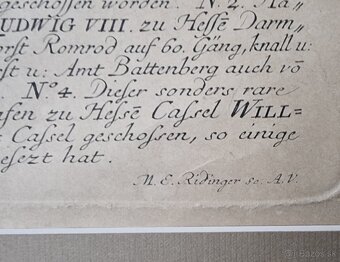 geschossen worden. N.2. Ha„
LUDWIG VIII. zu Hessẽ Darm„
orst Romrod auf 60. Gang, knall u:
rst u: Amt Battenberg auch vō
No. 4. Dieser sonders, rare
afen zu Hessẽ Cassel WILL=
Cassel geschossen, so einige
esezt hat.
M. E. Ridinger sc. A.V.
bazos.sk